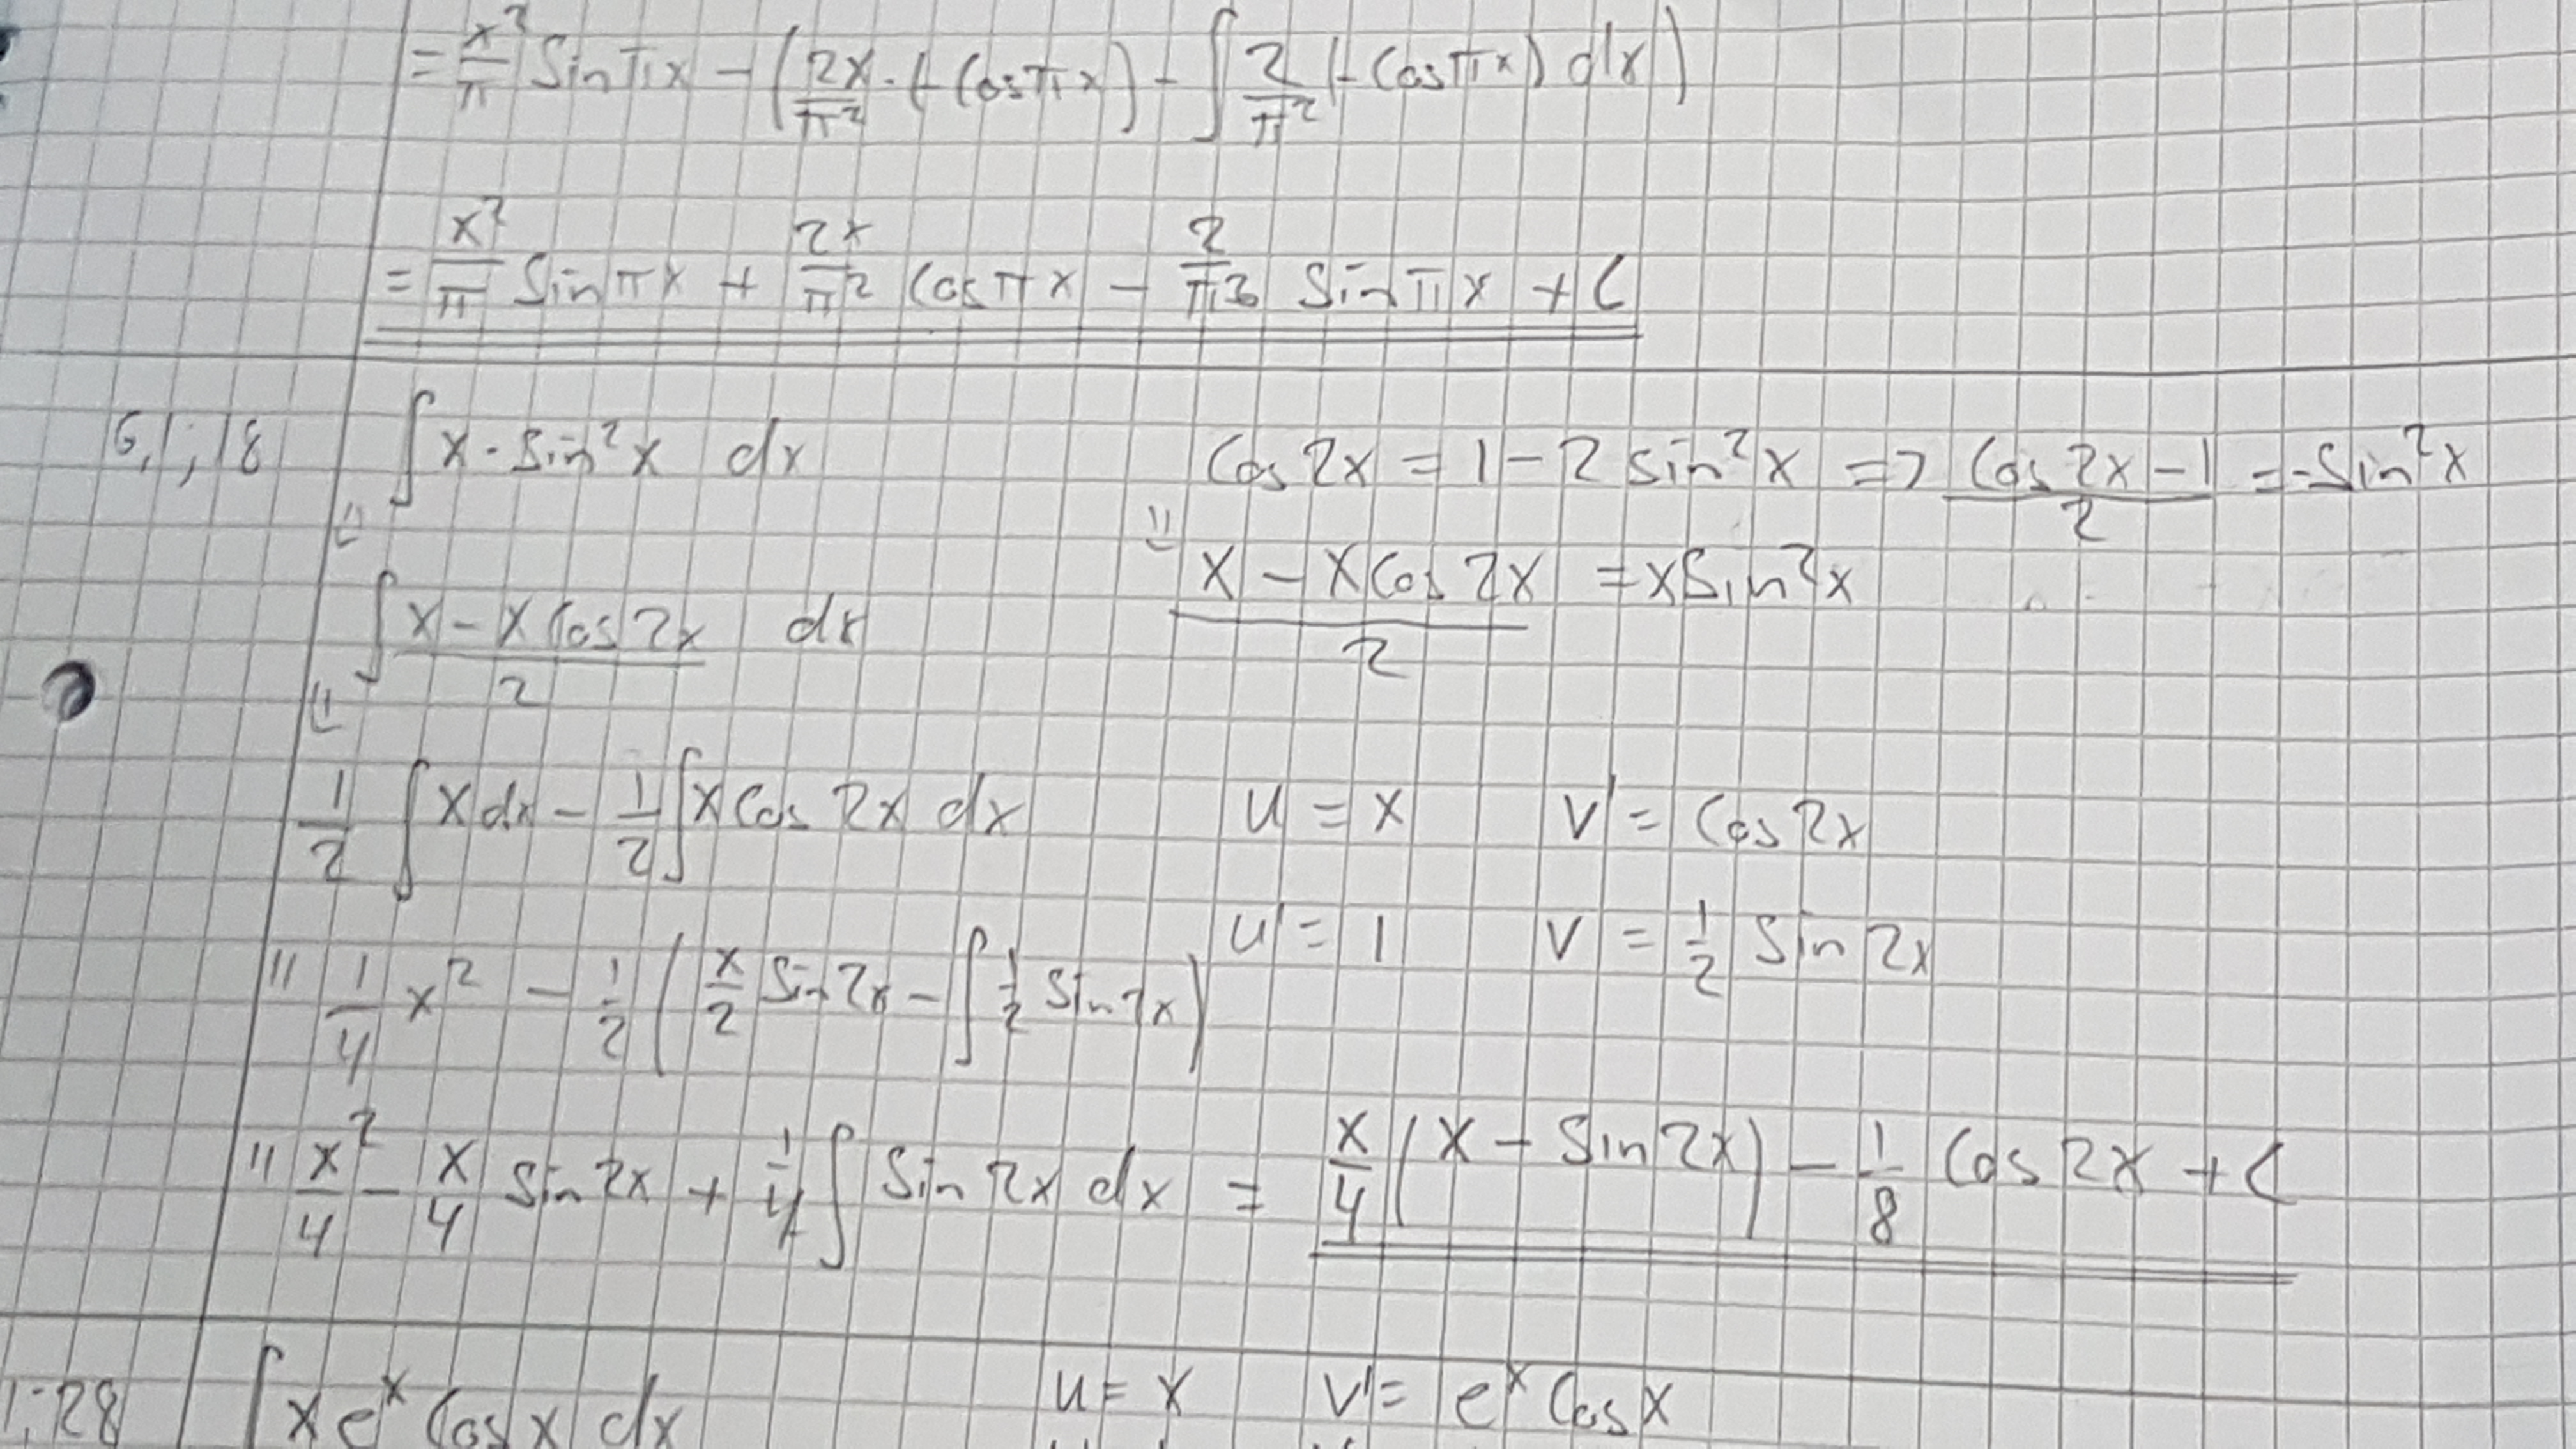 = x²/π Sin πx - (2x/π² · (-Cos πx) - ∫ 2/π² (-Cos πx) dx)
= x²/π Sin πx + 2x/π² Cos πx - 2/π³ Sin πx + C
6.1;18 ∫ x · Sin²x dx Cos 2x = 1 - 2 sin²x => (Cos 2x - 1)/2 = -Sin²x
= ∫ (x - x Cos 2x)/2 dx = (x - x Cos 2x)/2 = x Sin²x
= 1/2 ∫ x dx - 1/2 ∫ x Cos 2x dx u = x v' = Cos 2x
u' = 1 v = 1/2 Sin 2x
= 1/4 x² - 1/2 (x/2 Sin 2x - ∫ 1/2 Sin 2x)
= x²/4 - x/4 Sin 2x + 1/4 ∫ Sin 2x dx = x/4 (x - Sin 2x) - 1/8 Cos 2x + C
1:28 ∫ x eˣ Cos x dx u = x v' = eˣ Cos x